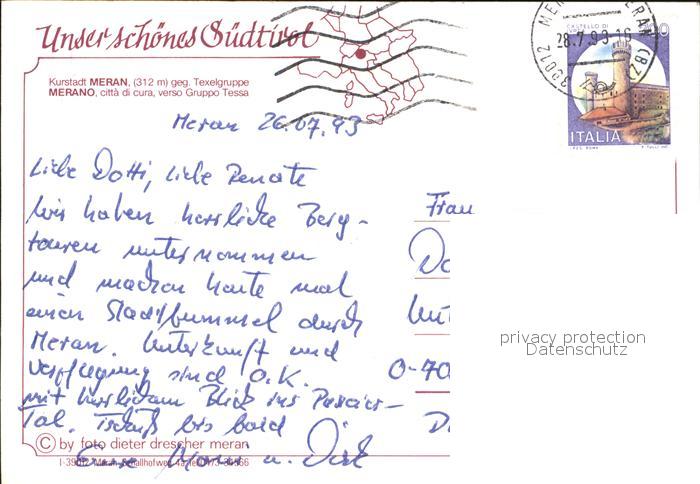 Unser schönes Südtirol
Kurstadt MERAN, (312 m) geg. Texelgruppe
MERANO, città di cura, verso Gruppo Tessa
CASTELLO DI
28.7.93-16
39012
(BZ)
ITALIA
Meran 26.07.93
Liebe Dotti, liebe Renate
Wir haben herrliche Berg-
touren unternommen
und machen heute mal
einen Stadtbummel durch
Meran. Unterkunft und
Verpflegung sind O.K.
mit herrlichem Blick ins Passeier-
Tal. Tschüß bis bald
Eure
u. Dirk
Frau
Do
Unt
O-70
D
privacy protection
Datenschutz
© by foto dieter drescher meran
I-39012 Meran, Schallhofweg